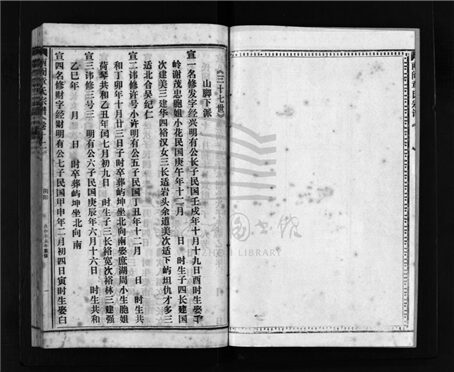 《三十七世》
山脚下派
宣一名修发字经兴明有公长子民国壬戌年十月十九日酉时生娶
岭谢茂忠胞姐小花民国庚午年十二月　日　时生子四长建国
次建美三建华四裕汉女三长适岩头余道美次适下屿坦仇才多三
适北合吴纪仁
宣二讳修许号小许明有公五子民国丁丑年十二月　日　时生共
和丁卯年十月廿三日子时卒葬屿坤坐北向南娶庶湖周小生胞姐
荷琴共和乙丑年闰七月初九日　时生子三长裕宽次裕林三建强
宣三讳修三号三　明有公六子民国庚辰年六月十六日　时生共和
乙巳年　月　日　时卒葬屿坤坐北向南
宣四名修财字经财明有公七子民国甲申年二月初四日寅时生娶白
LIBRARY